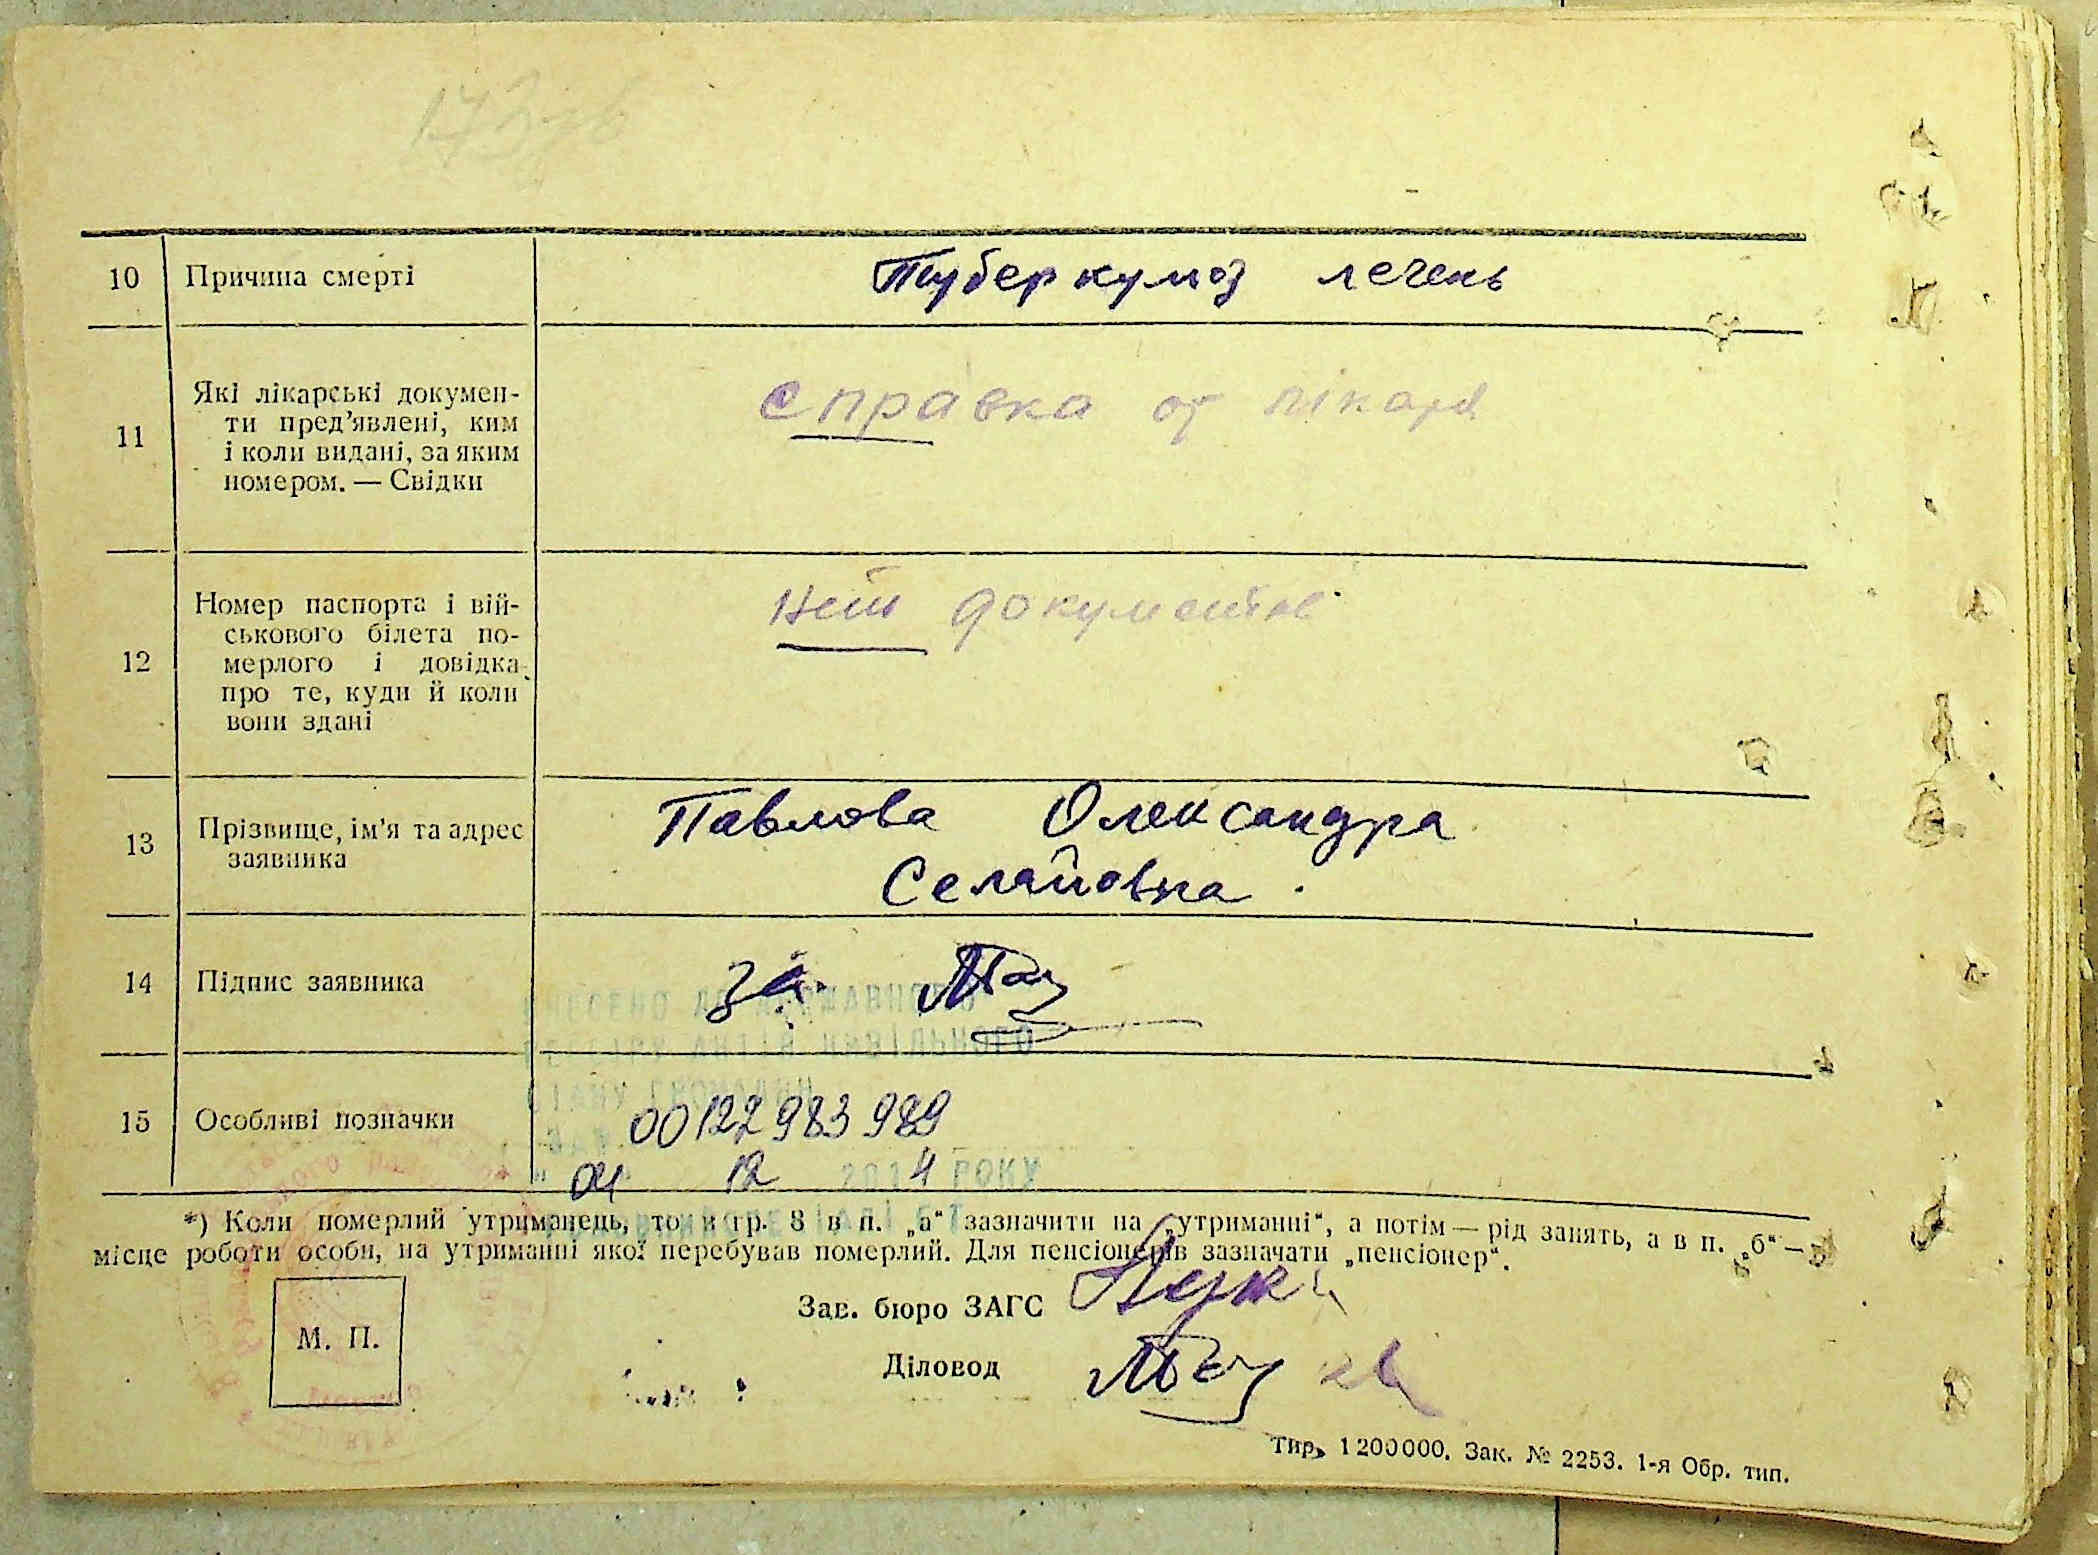 10 Причина смерті Туберкульоз лечень
11 Які лікарські докумен-
ти пред’явлені, ким
і коли видані, за яким
номером. — Свідки
справка от лікаря
12 Номер паспорта і вій-
ськового білета по-
мерлого і довідка
про те, куди й коли
вони здані
нет документов
13 Прізвище, ім’я та адрес
заявника
Павлова Олександра
Селайовна.
14 Підпис заявника За
ВНЕСЕНО ДО ДЕРЖАВНОГО
РЕЄСТРУ АКТІВ ЦИВІЛЬНОГО
СТАНУ ГРОМАДЯН
15 Особливі позначки 00122983989
04 12 2014 РОКУ
*) Коли померлий утриманець, то и гр. 8 в п. „а“ зазначити на „утриманні“, а потім — рід занять, а в п. „б“ —
місце роботи особи, на утриманні якої перебував померлий. Для пенсіонерів зазначати „пенсіонер“.
М. П.
Зав. бюро ЗАГС
Діловод
Тир. 1 200 000. Зак. № 2253. 1-я Обр. тип.